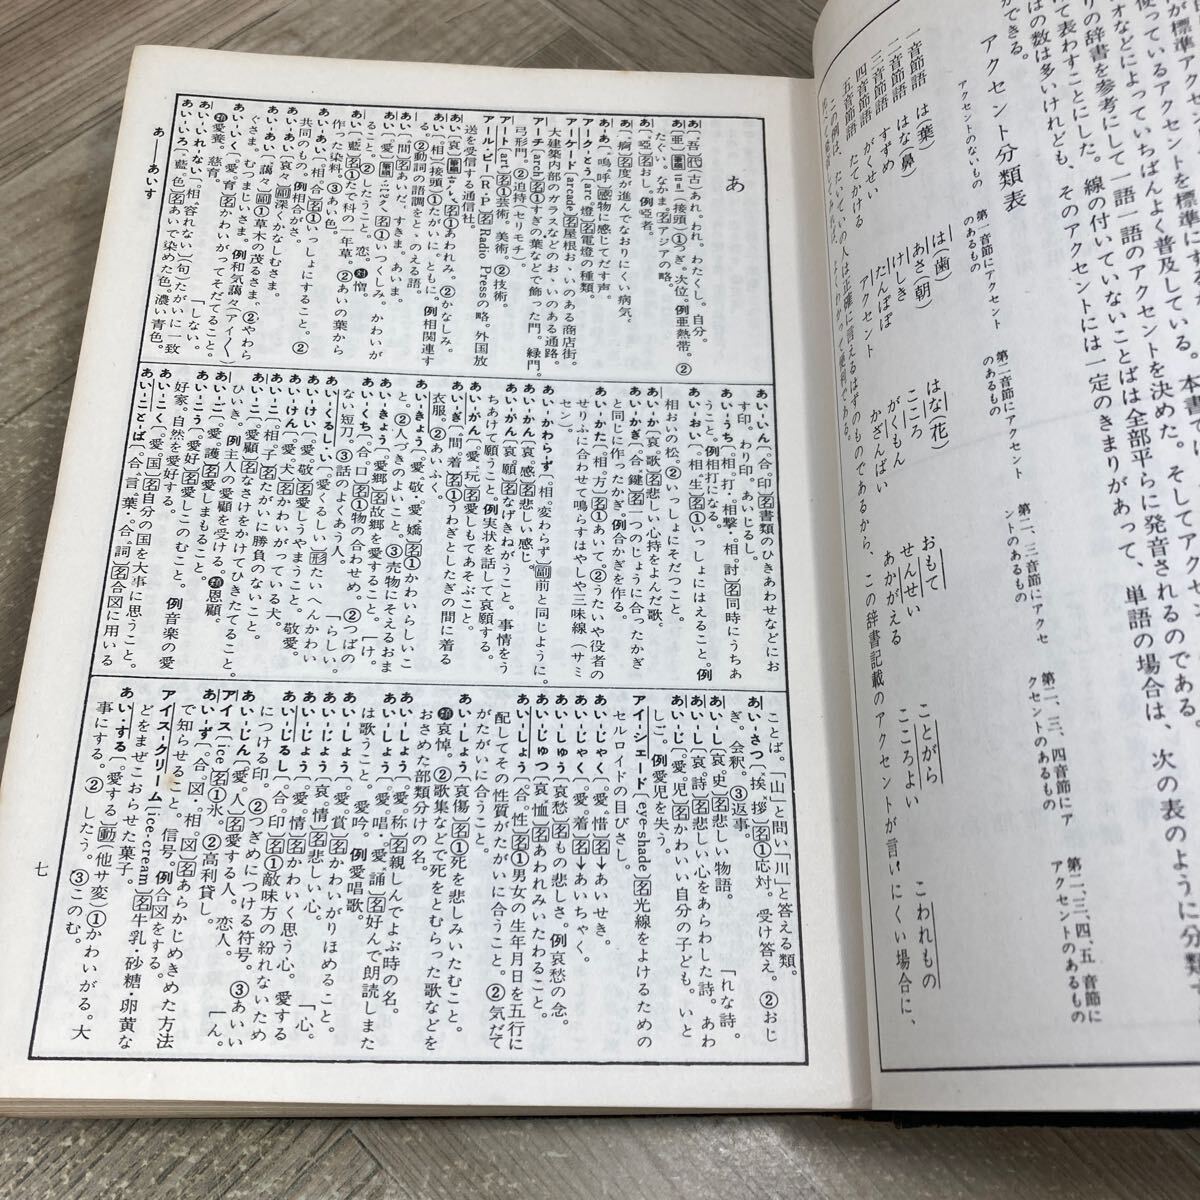 使っているアクセントを標準にしてアクセントを決めた。
オなどによっていちばんよく普及している。本書で
りの辞書を参考にして一語一語のアクセント
て表わすことにした。線の付いていないことばは全部平らに発音されるのである
はの数は多いけれども、そのアクセントには一定のきまりがあって、単語の場合は、次の表のように分類す
ができる。
アクセント分類表
アクセントのないもの
第一音節にアクセントのあるもの
第二音節にアクセントのあるもの
第二、三音節にアクセントのあるもの
第二、三、四音節にアクセントのあるもの
第二、三、四、五、音節にアクセントのあるもの
一音節語 は(葉) は(歯)
二音節語 はな(鼻) あさ(朝) はな(花)
三音節語 すずめ けしき こころ おもて
四音節語 たてかける たんぽぽ がくもん せんせい ことがら
五音節語 がくせい アクセント かざんばい あかがえる こころよい こわれもの
あ
あ〔吾〕代(古)あれ。われ。わたくし。自分。
あ〔亜〕(接頭)①つぎ。次位。例亜熱帯。②
たぐい。なかま。③アジアの略。
あ〔啞〕名おし。例啞者。
あ〔痾〕名度が進んでなおりにくい病気。
ああ〔嗚・呼〕感物に感じてだす声。
アークとう〔arc 燈〕名電燈の種類。
アーケード〔arcade〕名屋根お、いのある商店街。
大建築内部のガラスなどのお、いのある通路。
アーチ〔arch〕名①すぎの葉などで飾った門。緑門。
弓形門。②迫持(セリモチ)。
アート〔art〕名①芸術。美術。②技術。
アール・ピー〔R・P〕名Radio Pressの略。外国放
送を受信する通信社。
あい〔哀〕名①あわれみ。②かなしみ。
あい〔相〕(接頭)①たがいに。ともに。例相関連す
る。②動詞の語調をと、のえる語。
あい〔間〕名あいだ。すきま。あいま。
あい〔愛〕名①いつくしみ。かわいが
ること。②したうこと。恋。対憎
あい〔藍〕名①たで科の一年草。②あいの葉から
作った染料。③あい色。
あい-あい〔相・合〕名①いっしょにすること。②
共同のもの。例相合がさ。
あい-あい〔哀々〕副深くかなしむさま。
あい-あい〔藹々〕副①草木の茂るさま。②やわら
ぐさま。むつまじいさま。例和気藹々(アイ〱)
あい-いく〔愛・育〕名かわいがってそだてること。
類愛養。慈育。 「しない。
あい-いれ・ない〔相・容れない〕(句)たがいに一致
あい-いろ〔藍・色〕名あいで染めた色。濃い青色。
あい-いん〔合・印〕名書類のひきあわせなどにお
す印。わり印。あいじるし。
あい-うち〔相・打、相撃・相討〕名同時にうちあ
うこと。例相打になる。
あい-おい〔相・生〕名①いっしょにはえること。例
相おいの松。②いっしょにそだつこと。
あい-か〔哀・歌〕名悲しい心持をよんだ歌。
あい-かぎ〔合・鍵〕名一つのじょうに合ったかぎ
と同じに作ったかぎ。例合かぎを作る。
あい-かた〔相・方〕名①あいて。②うたいや役者の
せりふに合わせて鳴らすはやしや三味線(サミ
セン)。
あい-かわらず〔相・変わらず〕副前と同じように。
あい-かん〔哀・感〕名悲しい感じ。
あい-がん〔哀・願〕名なげきねがうこと。事情をう
ちあけて願うこと。例実状を話して哀願する。
あい-がん〔愛・玩〕名愛してもてあそぶこと。
あい-ぎ〔間・着〕名①うわぎとしたぎの間に着る
衣服。②あいふく。
あい-きょう〔愛・敬、愛・嬌〕名①かわいらしいこ
と。②人ずきのよいこと。③売物にそえるおま
あい-きょう〔愛・郷〕名故郷を愛すること。 「け。
あい-くち〔合・口〕名①物の合わせめ。②つばの
ない短刀。③話のよくあう人。
あい-くるし・い〔愛くるしい〕形たいへんかわい
あい-けい〔愛・敬〕名愛しうやまうこと。敬愛。 「らしい。
あい-けん〔愛・犬〕名かわいがっている犬。
あい-こ〔相・子〕名たがいに勝負のないこと。
あい-こ〔愛・顧〕名なさけをかけてひきたてること。
ひいき。例主人の愛顧を受ける。類恩顧。
あい-ご〔愛・護〕名愛しまもること。
あい-こう〔愛・好〕名愛しこのむこと。例音楽の愛
好家。自然を愛好する。
あい-こく〔愛・国〕名自分の国を大事に思うこと。
あい-ことば〔合・言・葉、合・詞〕名合図に用いる
ことば。「山」と問い「川」と答える類。
あい-さつ〔挨・拶〕名①応対。受け答え。②おじ
ぎ。会釈。③返事。
あい-し〔哀・史〕名悲しい物語。 「れな詩。
あい-し〔哀・詩〕名悲しい心をあらわした詩。あわ
あい-じ〔愛・児〕名かわいい自分の子ども。いと
しご。例愛児を失う。
アイ-シェード〔eye-shade〕名光線をよけるための
セルロイドの目びさし。
あい-じゃく〔愛・惜〕名→あいせき。
あい-じゃく〔愛・着〕名→あいちゃく。
あい-しゅう〔哀・愁〕名もの悲しさ。例哀愁の念。
あい-じゅつ〔哀・恤〕名あわれみいたわること。
あい-しょう〔合・性〕名①男女の生年月日を五行に
配してその性質がたがいに合うこと。②気だて
がたがいに合うこと。
あい-しょう〔哀・傷〕名①死を悲しみいたむこと。
類哀悼。②歌集などで死をとむらった歌などを
おさめた部類分けの名。
あい-しょう〔愛・称〕名親しんでよぶ時の名。
あい-しょう〔愛・唱、愛・誦〕名好んで朗読しまた
は歌うこと。愛吟。例愛唱歌。
あい-しょう〔愛・賞〕名かわいがりほめること。
あい-じょう〔哀・情〕名悲しい心。 「心。
あい-じょう〔愛・情〕名かわいく思う心。愛する
あい-じるし〔合・印〕名①敵味方の紛れないため
につける印。②つぎめにつける符号。③あいい
あい-じん〔愛・人〕名愛する人。恋人。 「ん。
アイス〔ice〕名①氷。②高利貸し。
あい-ず〔合・図、相・図〕名あらかじめきめた方法
で知らせること。信号。例合図をする。
アイス-クリーム〔ice-cream〕名牛乳・砂糖・卵黄な
どをまぜこおらせた菓子。
あい・する〔愛・する〕動(他サ変)①かわいがる。大
事にする。②したう。③このむ。
あ——あいす
七